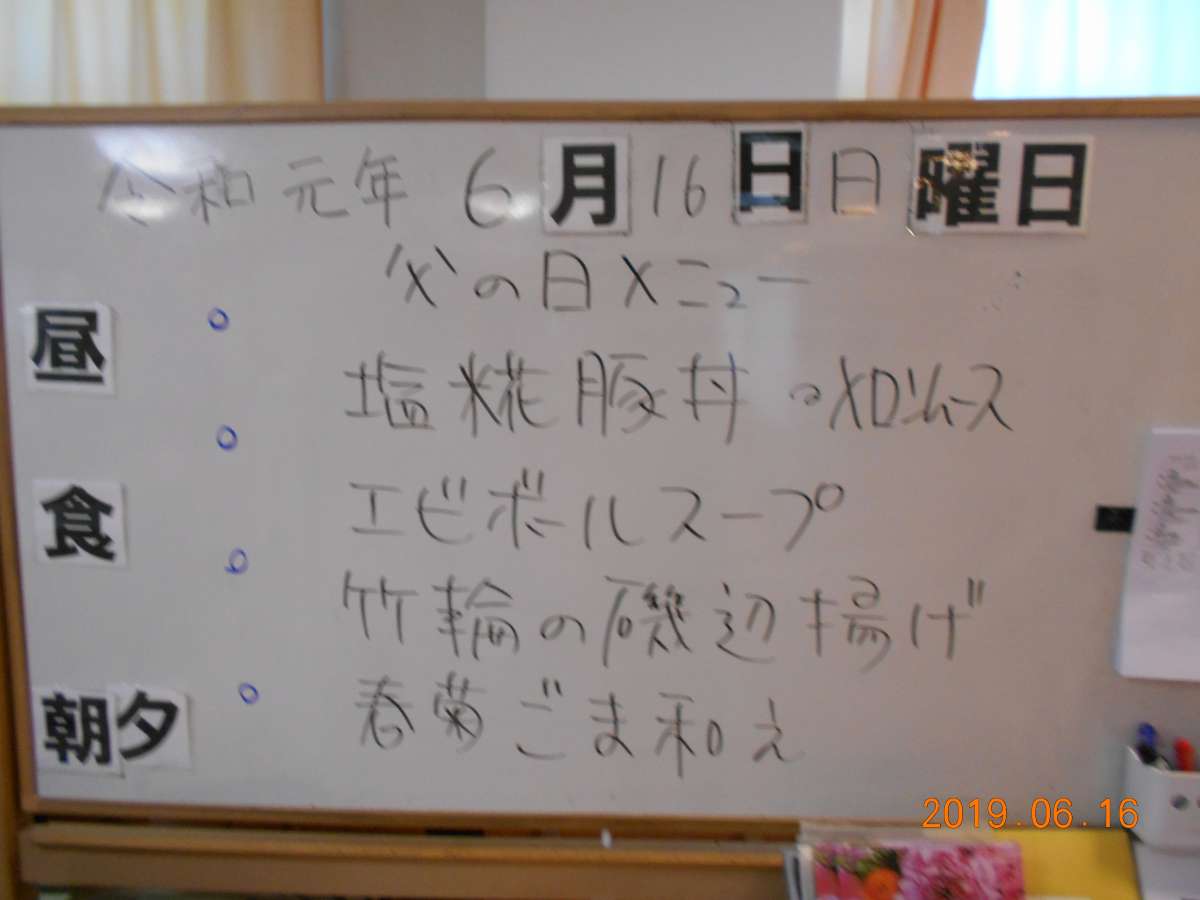 令和元年 6月16日 日曜日
父の日メニュー
昼食
塩糀豚丼 。メロンムース
エビボールスープ
竹輪の磯辺揚げ
春菊ごま和え
朝夕
2019.06.16